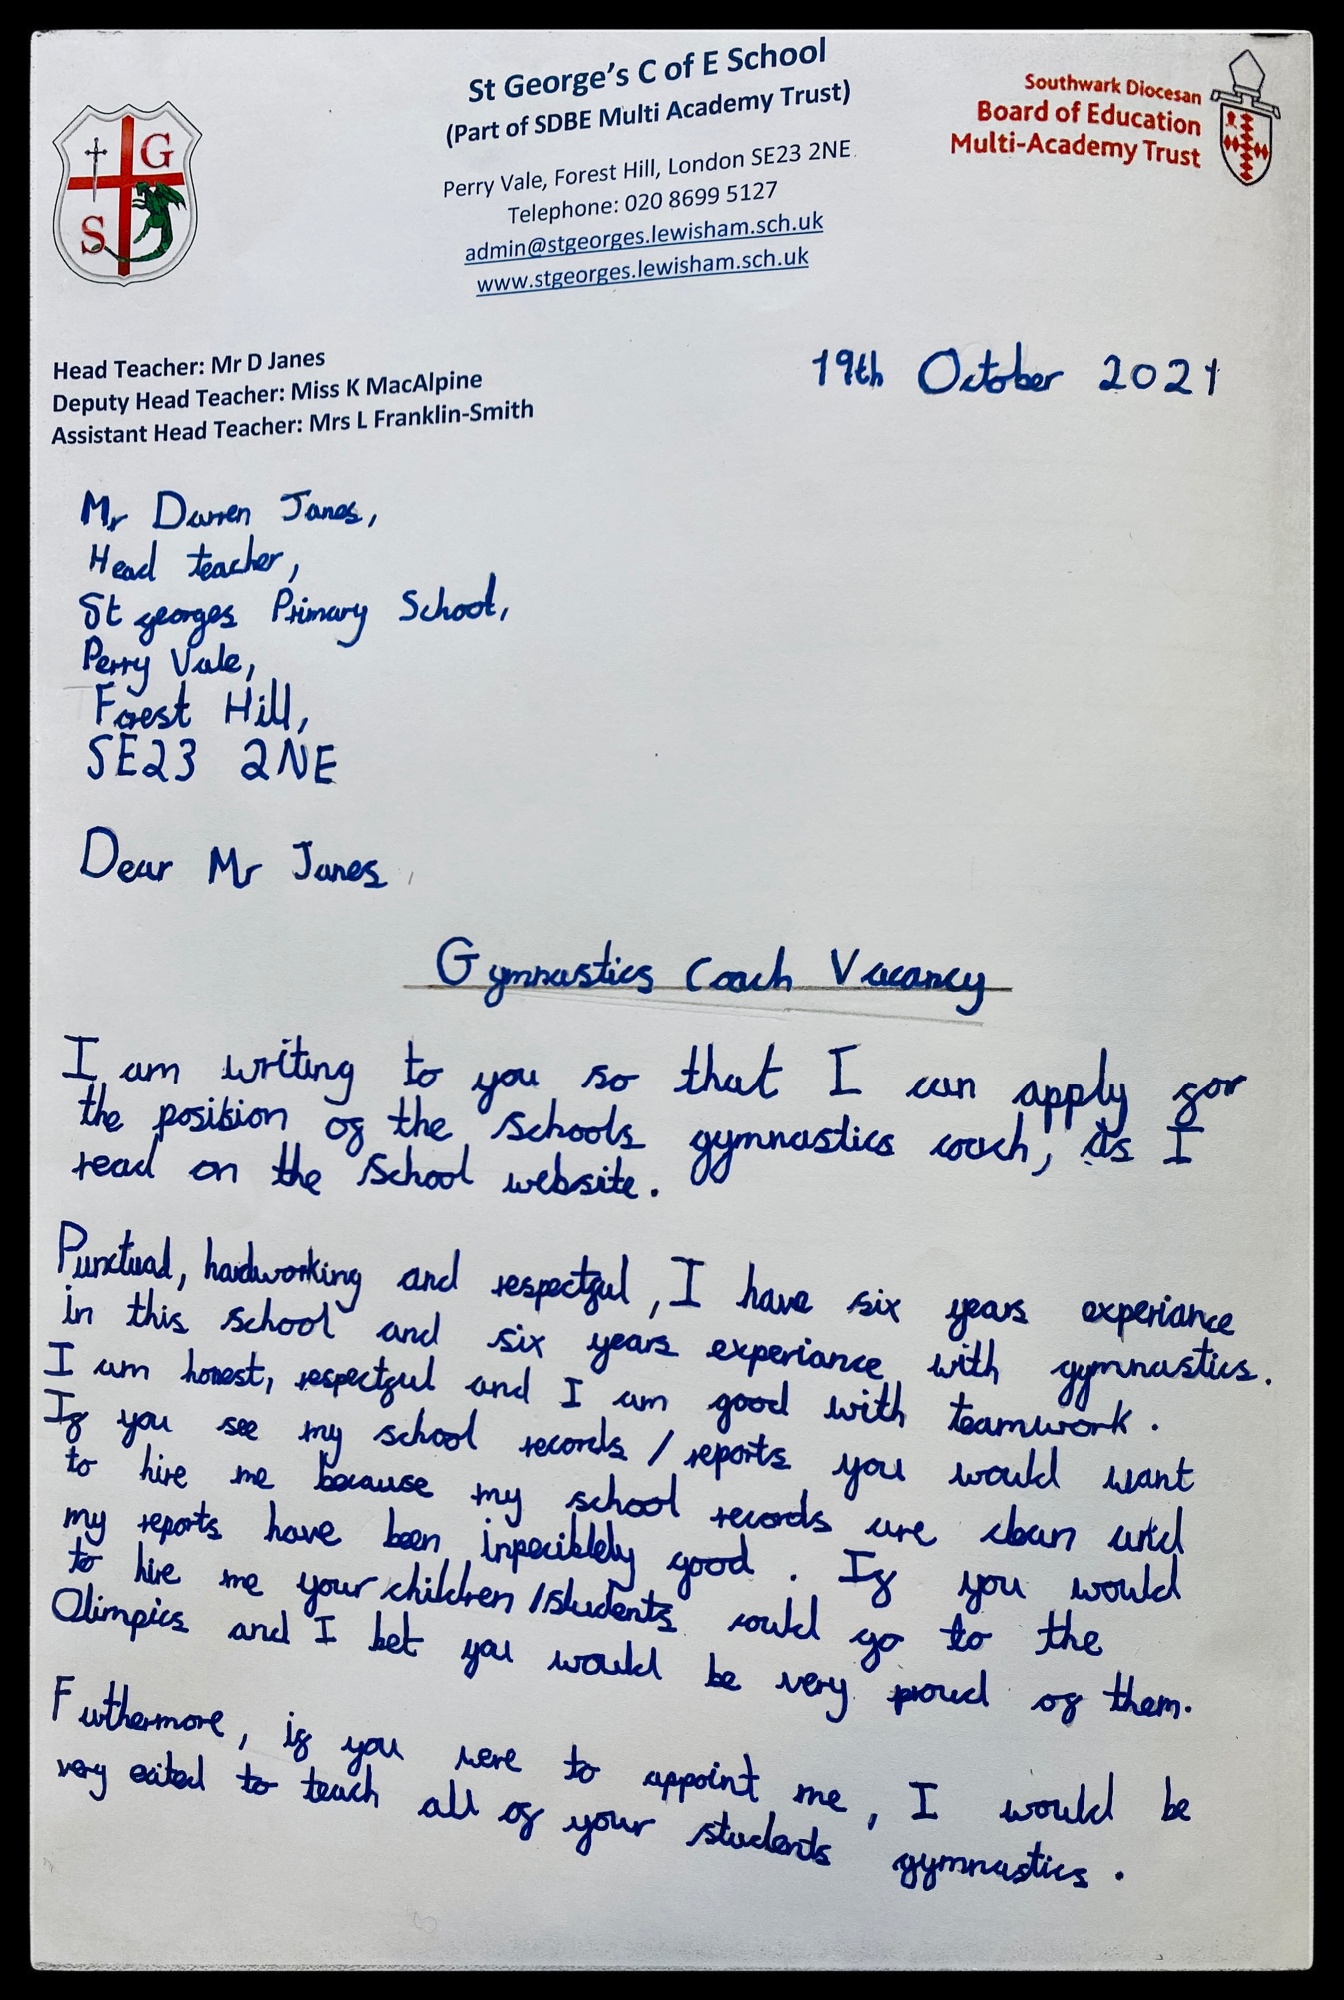 St George's C of E School
(Part of SDBE Multi Academy Trust)
Perry Vale, Forest Hill, London SE23 2NE
Telephone: 020 8699 5127
admin@stgeorges.lewisham.sch.uk
www.stgeorges.lewisham.sch.uk
Southwark Diocesan
Board of Education
Multi-Academy Trust
G
S
Head Teacher: Mr D Janes
Deputy Head Teacher: Miss K MacAlpine
Assistant Head Teacher: Mrs L Franklin-Smith
19th October 2021
Mr Darren Janes,
Head teacher,
St georges Primary School,
Perry Vale,
Forest Hill,
SE23 2NE
Dear Mr Janes
Gymnastics Coach Vacancy
I am writing to you so that I can apply for
the position of the schools gymnastics coach, as I
read on the school website.
Punctual, hardworking and respectful, I have six years experiance
in this school and six years experiance with gymnastics.
I am honest, respectful and I am good with teamwork.
If you see my school records / reports you would want
to hire me because my school records are clean and
my reports have been inpeciblely good. If you would
to hire me your children/students could go to the
Olimpics and I bet you would be very proud of them.
Futhermore, if you were to appoint me, I would be
very exited to teach all of your students gymnastics.